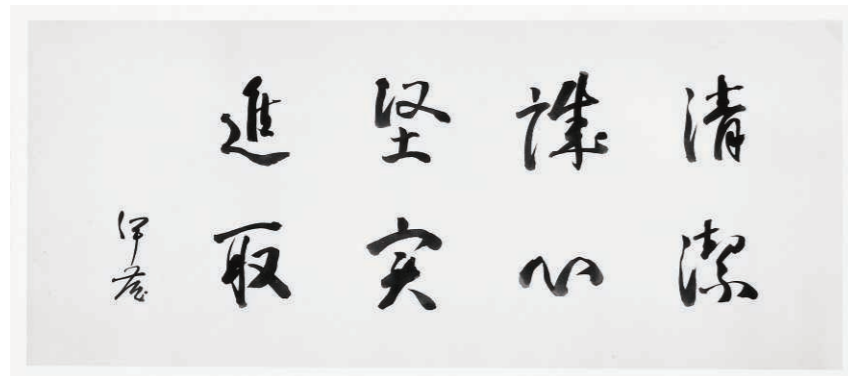 清潔
誠心
堅実
進取
伊藤